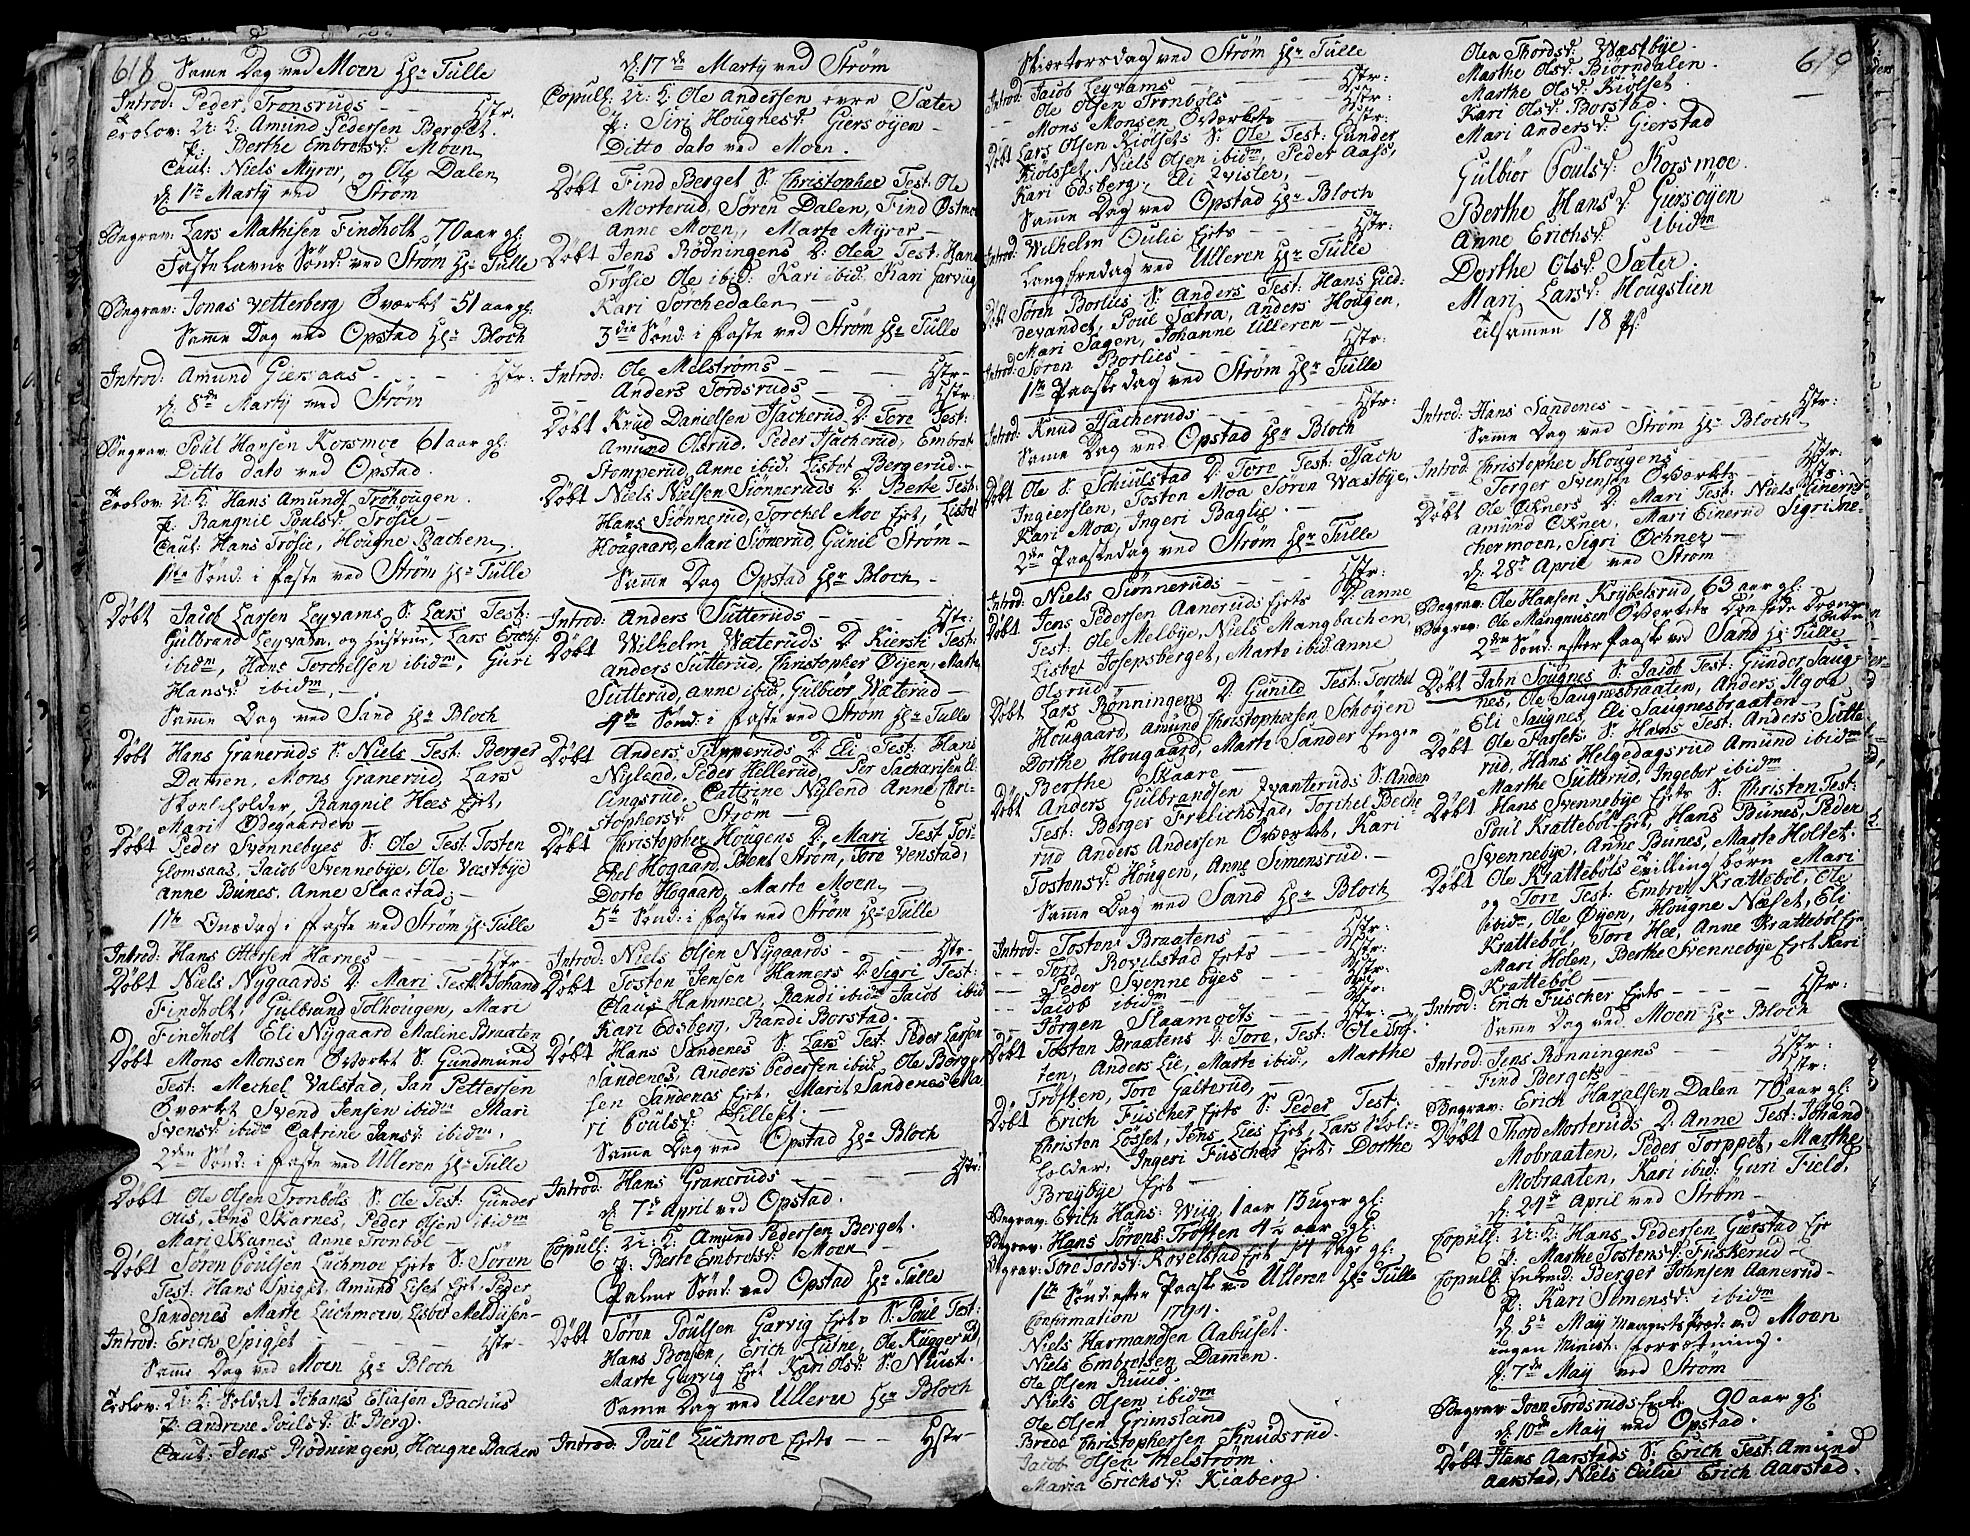 618 Same Dag ved Moen Hr Tulle
Introd: Peder Tronsruds - - Hstr:
Trolov: U: K: Amund Pedersen Berget.
P: Berthe Embretsd: Moen
Caut: Niels Myrer, og Ole Dalen
d: 1te Marty ved Strøm
Begrav: Lars Mathisen Findholt 70 aar gl:
Fastelavns Sønd: ved Strøm Hr Tulle
Begrav: Jonas Vetterberg Øværket 51 aar gl:
Same Dag ved Opstad Hr Bloch
Introd: Amund Giersaas - - - Hstr:
d: 8de Marty ved Strøm
Begrav: Poul Hansen Korsmoe 61 aar gl:
Ditto dato ved Opstad.
Trolov: U: K: Hans Amunds: Trøhougen.
P: Rangnil Poulsd: Trøsie -
Caut: Hans Trøsie, Hougne Bachen
1te Sønd: i faste ved Strøm Hr Tulle
Døbt Jacob Larsen Leyvams S: Lars Test:
Gulbrand Leyvam, og Hustrue, Lars Erichs:
ibidm, Hans Torchelsen ibidm, Guri
Hansd: ibidm, -
Same Dag ved Sand Hr Bloch
Døbt Hans Graneruds S: Niels Test: Berger
Damen, Mons Granerud, Lars
Skoleholder, Rangnil Hees Ejet,
Mari Ødegaarden -
Døbt Peder Svennebyes S: Ole Test: Tosten
Glomsaas, Jacob Svennebye, Ole Vestbye
Anne Bunes, Anne Slaastad. -
1te Onsdag i faste ved Strøm Hr Tulle
Introd: Hans Ottersen Harnes - - Hstr
Døbt Niels Nygaards D: Mari Test: Johand
Findholt, Gulbrand Tolhougen, Mari
Findholt Eli Nygaard Maline Braaten
Døbt Mons Monsen Øværket S: Gundmund
Test: Mechel Valstad, Jan Pettersen
Øværket Svend Jensen ibidm Mari
Svensd: ibidm Catrine Jansd: ibidm,
2den Sønd: i faste ved Ulleren Hr Tulle
Døbt Ole Olsen Tronbøls S: Ole Test: Gunder
Olis, Jens Skarnes, Peder Olsen ibidm
Mari Skarnes Anne Tronbøl -
Døbt Søren Poulsen Luchmoe Ejets S: Søren
Test: Hans Spiget, Amund Liset Ejet Peder
Sandenes Marte Luchmoen, Lisbet Meldiisen-
Introd: Erich Spigset - - - Hstr-
Same Dag ved Moen Hr Bloch
Trolov: U: K: Soldat Johanes Eliasen Bachus
P: Andrene Poulsd: S: Berg.
Caut: Jens Rødningen, Hougne Bachen
d: 17de Marty ved Strøm
Copull: U: K: Ole Andersen øvre Sæter
P: Siri Hougnesd: Giersøyen -
Ditto dato ved Moen.
Døbt Find Berget S: Christopher Test: Ole
Morterud, Søren Dalen, Find Østmoe
Anne Moen, Marte Myrer -
Døbt Jens Rødningens D: Olea Test: Hans
Trøsie Ole ibid: Kari ibid: Kari Garviig
Kari Torchedalen -
3die Sønd: i faste ved Strøm Hr Tulle
Introd: Ole Melstrøms - - - Hstr-
- - Anders Tordsruds - - - Hstr:
Døbt Knud Danielsen Hacherud D: Tore Test:
Amund Olsrud, Peder Hacherud, Embret
Stomperud, Anne ibid. Lisbet Bergerud. -
Døbt Niels Nielsen Siønneruds D: Berte Test:
Hans Siønnerud, Torchel Moe Ejet, Lisbet
Hougaard, Mari Siønerud, Gunil Strøm -
Same Dag Opstad Hr Bloch -
Introd: Anders Sutteruds - - - Hstr:
Døbt Wilhelm Wæteruds D: Kiersti Test:
Anders Sutterud, Christopher Øyen, Marte
Sutterud, Anne ibid, Gulbiør Wæterud -
4de Sønd: i faste ved Strøm Hr Tulle
Døbt Anders Tupperuds D: Eli Test: Hans
Nylend, Peder Hellerud, Per Sacharisen El
lingsrud, Cattrine Nylend Anne Chri-
stophersd Strøm -
Døbt Christopher Hougens D: Mari Test: Tor-
chel Hogaard, Bent Strøm, Tore Venstad,
Dorte Hogaard, Marte Moen -
5te Sønd: i faste ved Strøm Hr Tulle
Introd: Niels Olsen Nygaards - - Hstr-
Døbt Tosten Jensen Hamers D: Sigri Test:
Claus Hammer, Randi ibidm Jacob ibid
Kari Edsberg, Randi Borstad. -
Døbt Hans Sandenes S: Lars Test Peder Larsen
Sandenes, Anders Pedersen ibid Ole Berger-
sen Sandenes Ejet, Marit Sandenes Ma-
ri Poulsd: Lilleset. -
Same Dag ved Opstad Hr Bloch
Introd: Hans Graneruds - - - Hstr:
d: 7de April ved Opstad.
Copull: U: K: Amund Pedersen Berget.
P: Berte Embretsd: Moen -
Palme Sønd: ved Opstad Hr Tulle
Døbt Søren Poulsen Garvig Ejets S: Poul Test:
Hans Borsen, Erich Lusne, Ole Kuggerud,
Marte Garvig Ejet Kari Olsd: S: Niust.
Same Dag ved Ulleren Hr Bloch
Introd: Poul Luchmoe Ejets - - Hstr-
Skiærtorsdag ved Strøm Hr Tulle
Introd: Jacob Leyvams - - - Hstr:
- - Ole Olsen Tronbøls - - - Hstr:
Mons Monsen Øværket - - Hstr:
Døbt Lars Olsen Kiølsets S: Ole Test: Gunder
Kiølset, Niels Olsen ibidm, Peder Aass,
Kari Edsberg, Eli Qvister, -
Same Dag ved Opstad Hr Bloch
Introd: Wilhelm Oulie Ejets - - - Hstr:
Langfredag ved Ulleren Hr Tulle
Døbt Søren Borlies S: Anders Test: Hans Gied-
devandet, Poul Sætra, Anders Hougen,
Mari Sagen, Johanne Ulleren -
Introd: Søren Borlies - - - Hstr:
1te Paaskedag ved Strøm Hr Tulle
Introd: Knud Hacheruds - - - Hstr:
Same Dag ved Opstad Hr Bloch
Døbt Ole S: Schulstad D: Tore Test: Hach
Ingierslen, Tosten Moa Søren Wæstbye,
Kari Moa, Ingeri Baglie. -
2den Paaskedag ved Strøm Hr Tulle
Introd: Niels Siønneruds - - - Hstr:
Døbt Jens Pedersen Aaneruds Ejets D: Anne
Test: Ole Melbye, Niels Mangbachen,
Lisbet Josepsberget, Marte ibid: Anne
Olsrud -
Døbt Lars Rønningens D: Gunild Test: Torchel
Hougaard, Amund Christophersen Schøyen
Dorthe Hougaard, Marte Sander Engen
Berthe Skaare -
Døbt Anders Gulbrandsen Qvanteruds S: Anders
Test: Berger Freilichstad, Torchel Beche
rud Anders Andersen Øværket, Kari
Tostensd: Hougen, Anne Simensrud. -
Same Dag ved Sand Hr Bloch
Introd: Tosten Braatens - - - Hstr:
- - Tord Rovelstad Ejets - - - Hstr:
- - Peder Svennebyes - - - Hstr:
- - Jacob ibidm - - - Hstr:
- - Jørgen Slaamoets - - - Hstr:
Døbt Tosten Braatens D: Tore, Test: Ole Brf-
ten, Anders Lie, Marte ibid, Marthe
Trøften, Tore Galterud, -
Døbt Erich Fuscher Ejets S: Peder Test:
Christen Losset, Jens Lies Ejet, Lars Skole-
holder, Ingeri Fuscher Ejet, Dorthe
Brøybye Ejet -
Begrav: Erich Hans: Wiig, 1 aar 13 uger gl:
Begrav: Hans Sørens: Trøften 4 1/2 aar gl:
Begrav: Tore Tordsd: Rovelstad Ejet 14 Dage gl:
1te Sønd: efter Paaske ved Ulleren Hr Tulle
Confirmation 1794.
Niels Harmandsen Aabuset.
Niels Embretsen Dammen.
Ole Olsen Ruud.
Niels Olsen ibidm
Ole Olsen Grimsland
Brede Christophersen Knudsrud.
Jacob Olsen Melstrøm.
Maria Erichsd: Kiaberg.
Olea Thordsd: Wæstbye. 619
Marthe Olsd: Biørndalen.
Marthe Olsd: Kiølset.
Kari Olsd: Borstad.
Mari Andersd: Gierstad
Gulbiør Poulsd: Korsmoe.
Berthe Hansd Giersøyen
Anne Erichsd: ibidm
Dorthe Olsd: Sæter.
Mari Larsd: Hougslien
tilsammen 18 ps:
Introd: Hans Sandenes - - - Hstr:
Same Dag ved Strøm Hr Bloch
Introd: Christopher Hougens - - - Hstr:
- - Torger Svensen Øværket - - Hstr:
Døbt Ole Ochners D: Mari Test: Niels Einerud
Amund Ochner, Mari Einerud Sigri Sne-
chermoen, Sigri Ochner -
d: 28de April ved Strøm
Begrav: Ole Hansen Krybelsrud, 63 aar gl: -
Begrav: Ole Mangnusen Øværkets Dødføde Drænge Barn
2den Sønd: efter Paaske ved Sand Hr Tulle
Døbt Jahn Sougnes S: Jacob Test: Gunder Saug-
nes, Ole Saugnesbraaten, Anders Ilgod
Eli Saugnes, Eli Saugnesbraaten -
Døbt Ole Parsets S: Hans Test: Anders Sutte
rud, Hans Helgedagsrud Amund ibidm
Marthe Sutterud, Ingebor ibidm.
Døbt Hans Svennebye Ejets S: Christen Test:
Poul Krattebøl Ejet, Hans Bunes, Peder
Svennebye, Anne Bunes, Marte Holtet.
Døbt Ole Krattebøls tvillingbørn Mari
og Tore Test: Embret Krattebøl, Ole
ibidm, Ole Øyen, Hougne Næset, Eli
Krattebøl, Tore Hee, Anne Krattebøl Eje
Mari Holen, Berthe Svennebye Ejet Kari
Krattebøl -
Introd: Erich Fuscher Ejets - - - Hstr:
Same Dag ved Moen Hr Bloch
Introd: Jens Rønningens - - - Hstr:
- - Find Bergets - - - Hstr:
Begrav: Erich Haralsen Dalen 70 aar gl:
Døbt Thord Morteruds D: Anne Test: Johand
Mobraaten, Peder Torppet, Marthe
Mobraaten, Kari ibid: Guri Field,
d: 24de April ved Strøm -
Copull: U: K: Hans Pedersen Gierstad Eje
P: Marthe Tostensd: Fuskerud -
Copull: Enkemd: Berger Johnsen Aanerud -
P: Kari Simensd: ibidm
d: 5te May Maanets Bed: ved Moen
ingen Minist: forretning.
d: 7de May ved Strøm
Begrav: Joen Tordsruds Ejets 90 aar gl:
d: 10de May ved Opstad.
Døbt Hans Aarstads S: Erich Test: Amund
Aarstad, Niels Oulie Erich Aarstad.